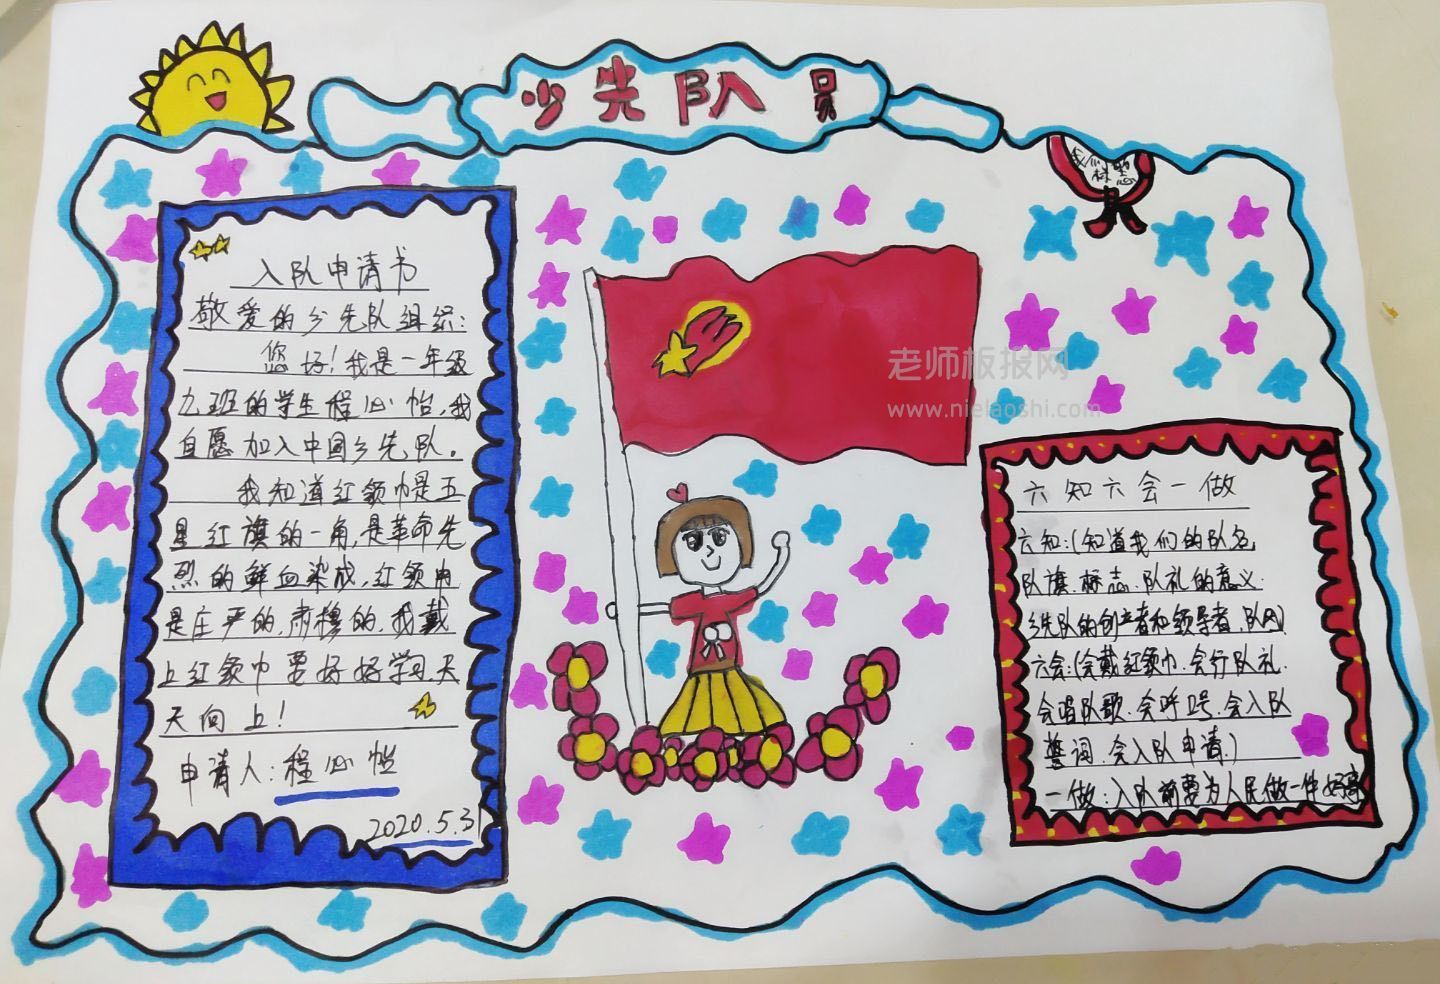 少先队员
入队申请书
敬爱的少先队组织:
您好!我是一年级
九班的学生程心怡,我
自愿加入中国少先队。
我知道红领巾是五
星红旗的一角,是革命先
烈的鲜血染成,红领巾
是庄严的,肃穆的,我戴
上红领巾要好好学习,天
天向上!
申请人:程心怡
2020.5.31
老师板报网
www.nielaoshi.com
六知六会一做
六知:(知道我们的队名,
队旗.标志.队礼的意义.
少先队的创立者和领导者.队风)
六会:(会戴红领巾.会行队礼.
会唱队歌.会呼号.会入队
誓词.会入队申请.)
一做:入队前要为人民做一件好事